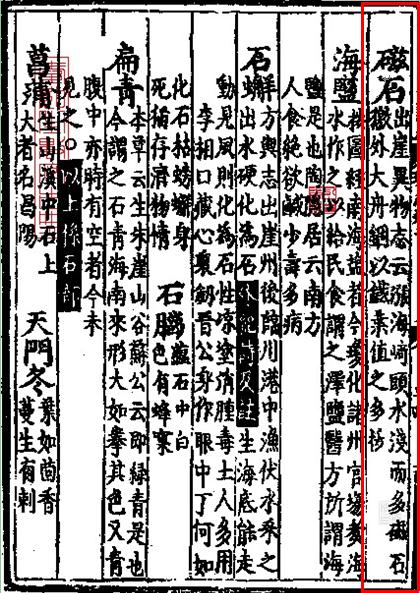 磁石
出崖異物志云漲海崎頭水淺而多磁石
徼外大舟錮以鐵葉值之多拔
海鹽
按圖經南海鹽者今變化諸州官場煑海
水作之以給民食謂之澤鹽醫方所謂海
鹽是也陶隱居云南方
人食絕欲鹹少壽多病
石蠏
方輿志出崖州後臨川港中漁伏水采之
出水硬化為石
生海底能走
動見風則化為石性涼塗消腫毒土人多用
李相口藏心裏劒晉公身作眼中丁何如
化石枯螃蠏身
死猶存濟物情
石
石中白
色有蜂窠
扁青
本草云生朱崖山谷蘇公云即綠青是也
今謂之石青海南來形大如拳其色又青
腹中亦時有空者今未
見之○以上係石部
菖蒲
生海濱中石上
大者名昌陽
天門冬
葉如茴香
蔓生有刺